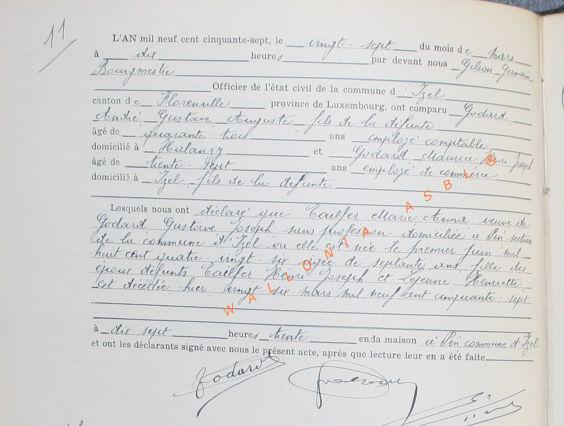 11
L'AN mil neuf cent cinquante-sept, le vingt-sept du mois de mars
à dix heures par devant nous Gilson Germain
Bourgmestre
Officier de l'état civil de la commune d'Izel
canton de Florenville province de Luxembourg, ont comparu Godard,
André Gustave Auguste, fils de la défunte
âgé de quarante trois ans employé comptable
domicilié à Halanzy et Godard Maurice Joseph
âgé de trente-sept ans employé de commerce
domicilié à Izel, fils de la défunte
Lesquels nous ont déclaré que Tailfer Marie Anna veuve de
Godard Gustave Joseph sans profession domiciliée à Pin section
de la commune d'Izel où elle est née le premier juin mil
huit cent quatre-vingt-six âgée de septante ans fille des
époux défunts Tailfer Henri Joseph et Lejeune Henriette
est décédée, hier, vingt six mars mil neuf cent cinquante-sept
à dix sept heures trente en la maison à Pin commune d'Izel
et ont les déclarants signé avec nous le présent acte, après que lecture leur en a été faite
Godard
WALLONIA ASBL ®